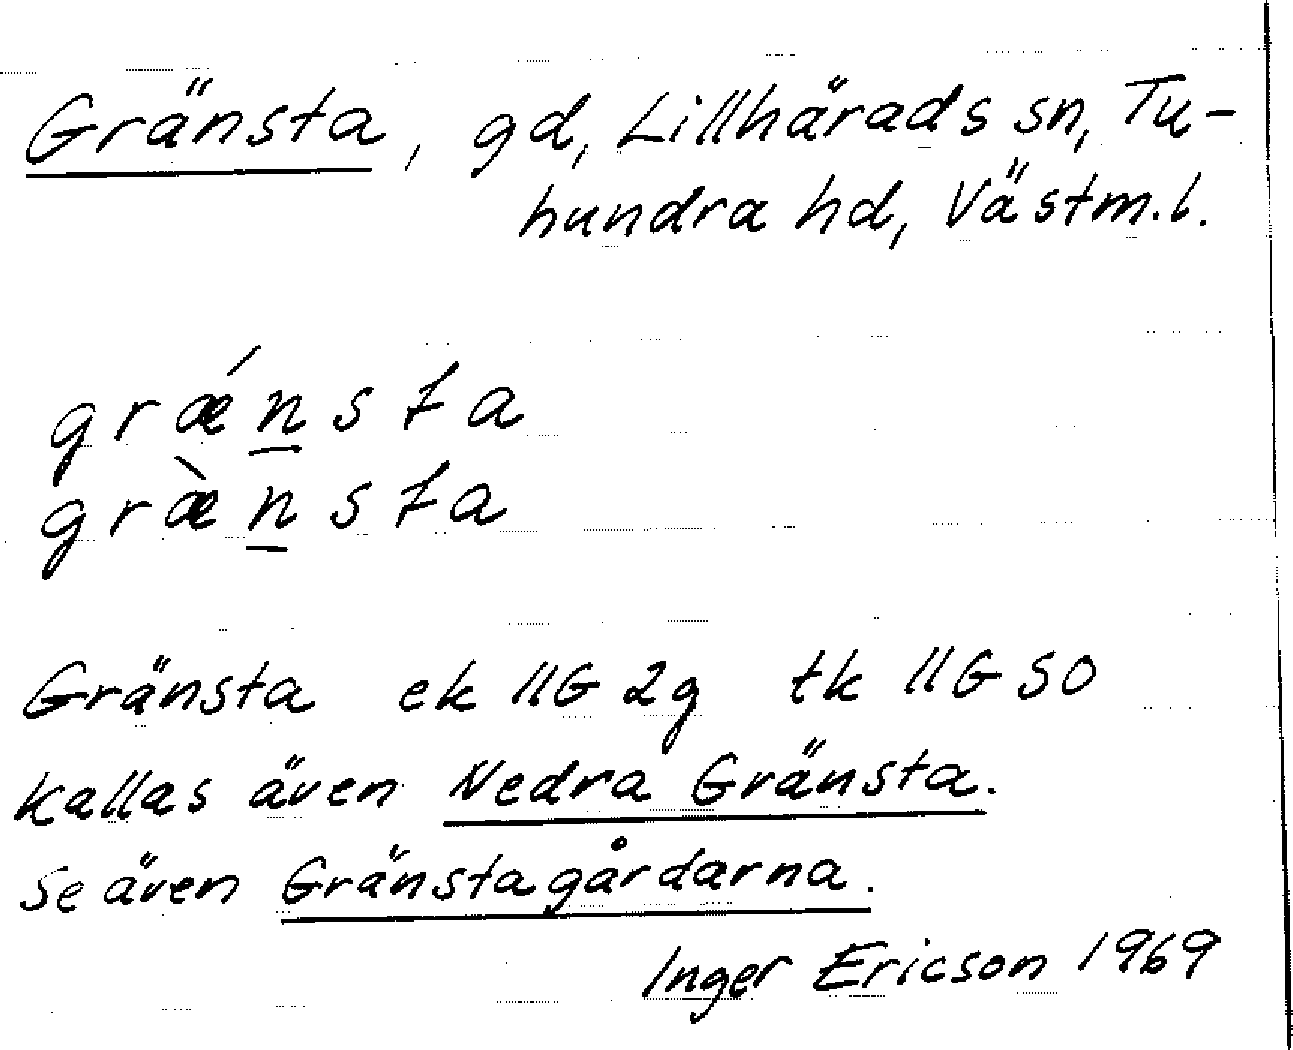 Gränsta, gd, Lillhärads sn, Tu-
hundra hd, Västm.l.
grǽn̲sta
græ̀n̲sta
Gränsta ek 11G 2g tk 11G SO
kallas även Nedra Gränsta.
Se även Gränstagårdarna.
Inger Ericson 1969